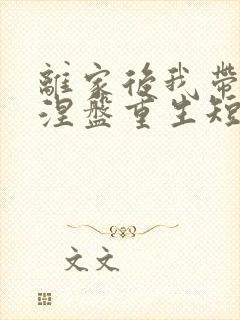 離家後我帶
涅盤重生短
文文